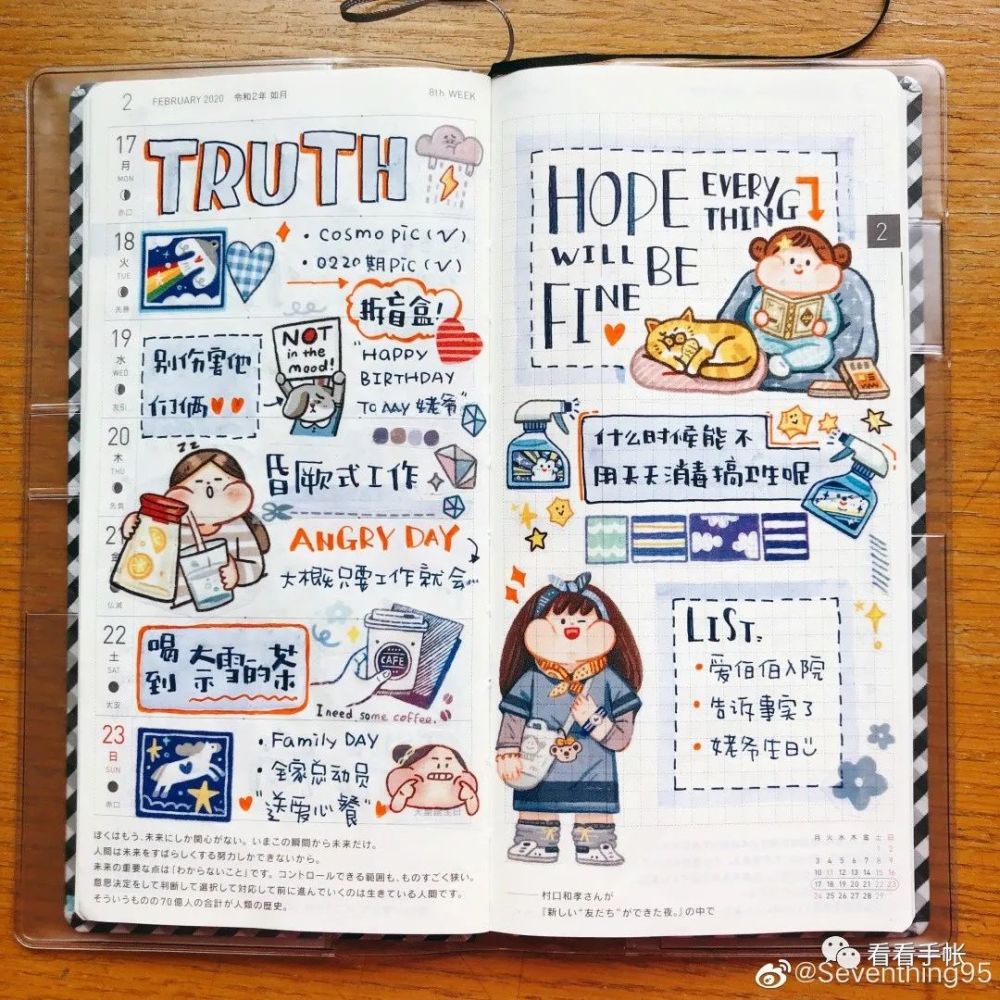 2 FEBRUARY 2020 令和2年 如月 8th WEEK
17
月
MON
赤口
TRUTH
18
火
TUE
先勝
• COSMO PIC (√)
• 0220期PIC (√)
拆盲盒!
19
水
WED
友引
别伤害他
们俩
NOT
in the
mood!
"HAPPY
BIRTHDAY
TO MY 姥爷"
20
木
THU
先負
zz
昏厥式工作
21
金
仏滅
ANGRY DAY
大概只要工作就会...
22
土
SAT
大安
喝
到
奈雪的茶
CAFE
I need some coffee.
23
日
SUN
赤口
• Family DAY
• 全家总动员
"送爱心餐"
天皇誕生日
ぼくはもう、未来にしか関心がない。いまこの瞬間から未来だけ。
人間は未来をすばらしくする努力しかできないから。
未来の重要な点は「わからないこと」です。コントロールできる範囲も、ものすごく狭い。
意思決定をして判断して選択して対応して前に進んでいくのは生きている人間です。
そういうものの70億人の合計が人類の歴史。
HOPE EVERY
THING
WILL BE
FINE
2
什么时候能不
用天天消毒搞卫生呢
LIST:
• 爱伯伯入院
• 告诉事实了
• 姥爷生日
月 火 水 木 金 土 日
1 2
3 4 5 6 7 8 9
10 11 12 13 14 15 16
17 18 19 20 21 22 23
24 25 26 27 28 29
——村口和孝さんが
『新しい“友だち”ができた夜。』の中で
看看手帐
@Seventhing95